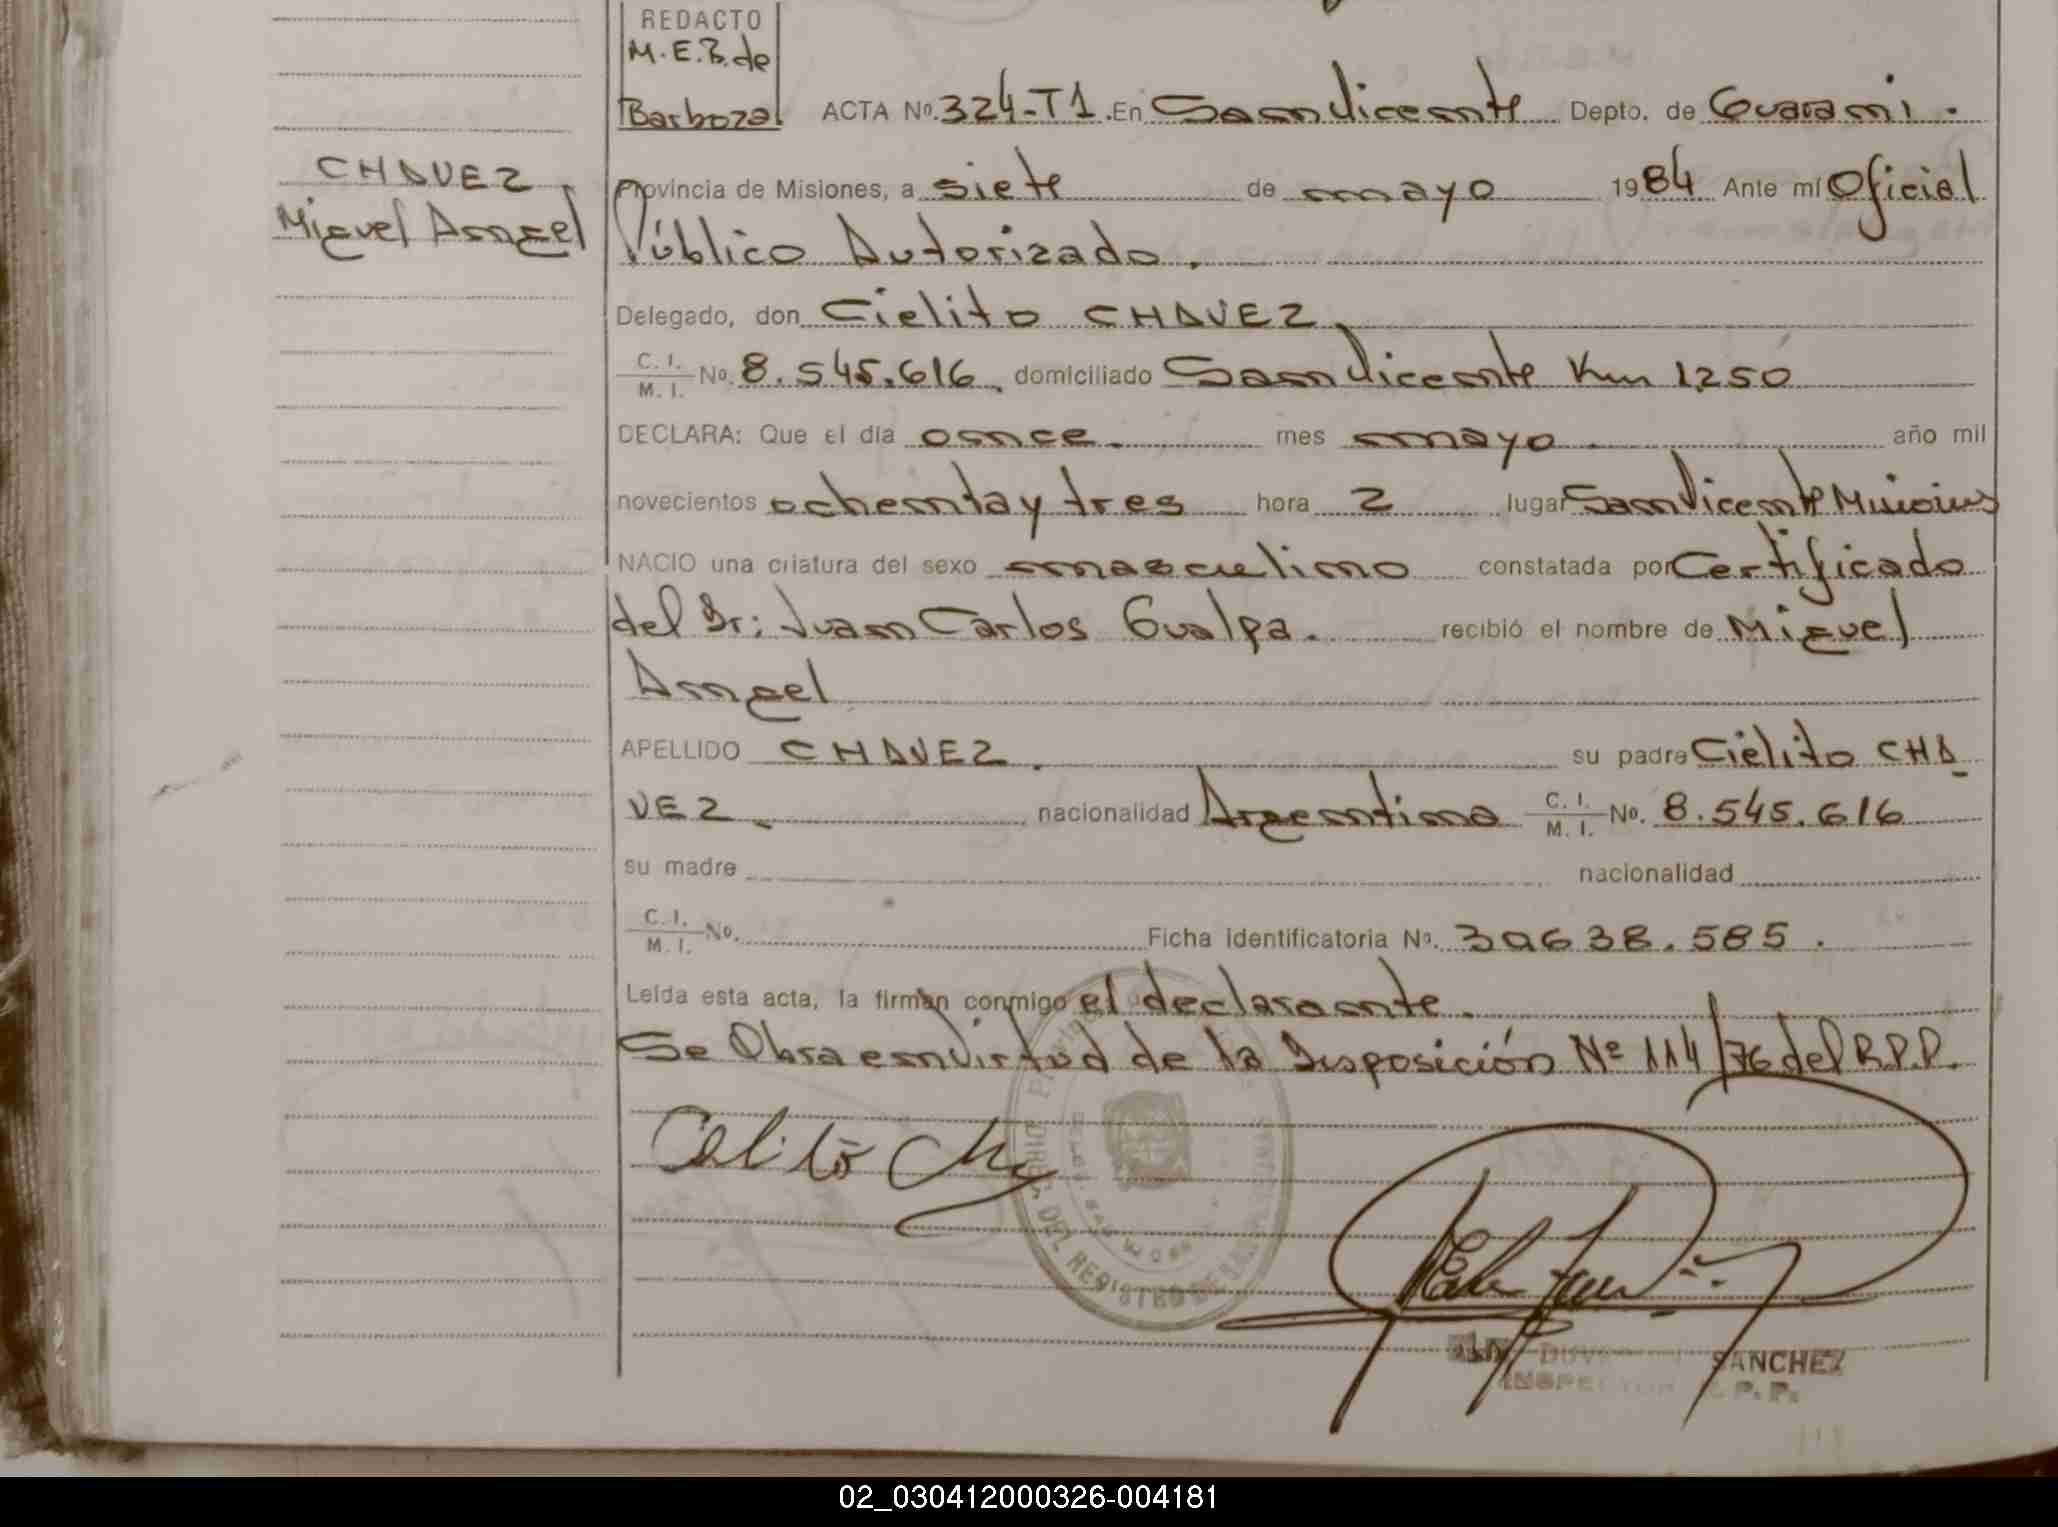 REDACTO
M.E.B. de
Barboza
ACTA Nº. 324-T1. En San Vicente Depto. de Guarani.
CHAVEZ,
Miguel Angel
Provincia de Misiones, a siete de mayo 1984 Ante mí Oficial
Público Autorizado.
Delegado, don Cielito CHAVEZ,
C. I. / M. I. No. 8.545.616, domiciliado San Vicente Km 1250
DECLARA: Que el día once. mes mayo. año mil
novecientos ochenta y tres hora 2 lugar San Vicente Misiones
NACIO una criatura del sexo masculino constatada por Certificado
del Dr: Juan Carlos Gualpa. recibió el nombre de Miguel
Angel
APELLIDO CHAVEZ. su padre Cielito CHA
VEZ. nacionalidad Argentino C. I. / M. I. No. 8.545.616
su madre nacionalidad
C. I. / M. I. No. Ficha identificatoria Nº. 30638.585.
Leída esta acta, la firman conmigo el declarante.
Se Obra en virtud de la Disposición Nº 114/76 del R.P.P.
Celito Ch
DIREC. DEL REGISTRO DE LAS
SANCHEZ
INSPECTOR R. P. P.
02_030412000326-004181